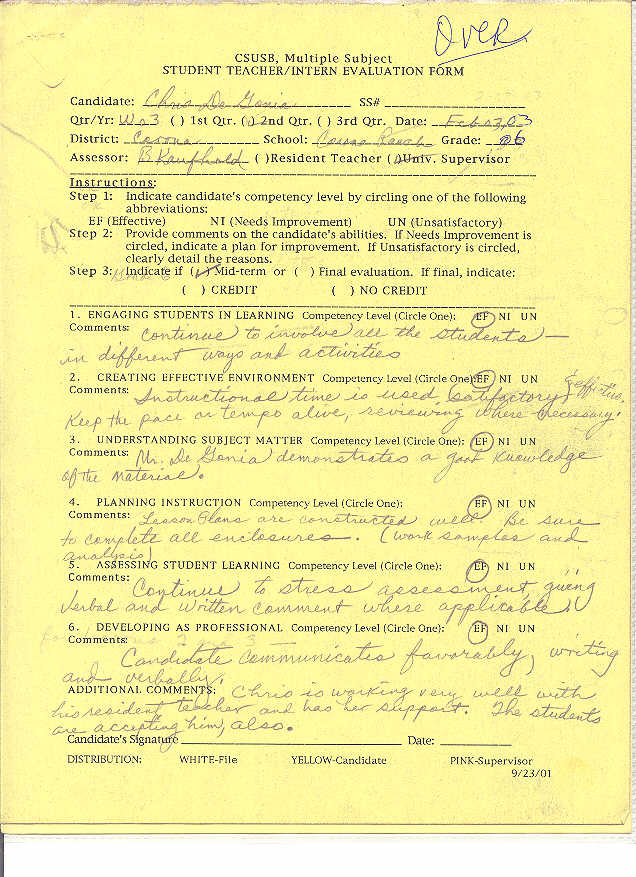 Over
CSUSB, Multiple Subject
STUDENT TEACHER/INTERN EVALUATION FORM
Candidate: Chris De Gonia SS#
Qtr/Yr: W03 ( ) 1st Qtr. (✓) 2nd Qtr. ( ) 3rd Qtr. Date: Feb 03, 03
District: Corona School: Corona Ranch Grade: 06
Assessor: B Kaufhold ( )Resident Teacher (✓)Univ. Supervisor
Instructions:
Step 1: Indicate candidate's competency level by circling one of the following
abbreviations:
EF (Effective) NI (Needs Improvement) UN (Unsatisfactory)
Step 2: Provide comments on the candidate's abilities. If Needs Improvement is
circled, indicate a plan for improvement. If Unsatisfactory is circled,
clearly detail the reasons.
Step 3: Indicate if (✓) Mid-term or ( ) Final evaluation. If final, indicate:
( ) CREDIT ( ) NO CREDIT
1. ENGAGING STUDENTS IN LEARNING Competency Level (Circle One): EF NI UN
Comments: Continue to involve all the students —
in different ways and activities
2. CREATING EFFECTIVE ENVIRONMENT Competency Level (Circle One): EF NI UN
Comments: Instructional time is used, satisfactory
Keep the pace or tempo alive, reviewing where necessary.
3. UNDERSTANDING SUBJECT MATTER Competency Level (Circle One): EF NI UN
Comments: Mr. De Gonia demonstrates a good knowledge
of the material.
4. PLANNING INSTRUCTION Competency Level (Circle One): EF NI UN
Comments: Lesson Plans are constructed well. Be sure
to complete all enclosures. (work samples and
analysis)
5. ASSESSING STUDENT LEARNING Competency Level (Circle One): EF NI UN
Comments: Continue to stress assessment, giving
verbal and written comment where applicable.
6. DEVELOPING AS PROFESSIONAL Competency Level (Circle One): EF NI UN
Comments:
Candidate communicates favorably, writing
and verbally.
ADDITIONAL COMMENTS: Chris is working very well with
his resident teacher and has her support. The students
are accepting him, also.
Candidate's Signature Date:
DISTRIBUTION: WHITE-File YELLOW-Candidate PINK-Supervisor
9/23/01